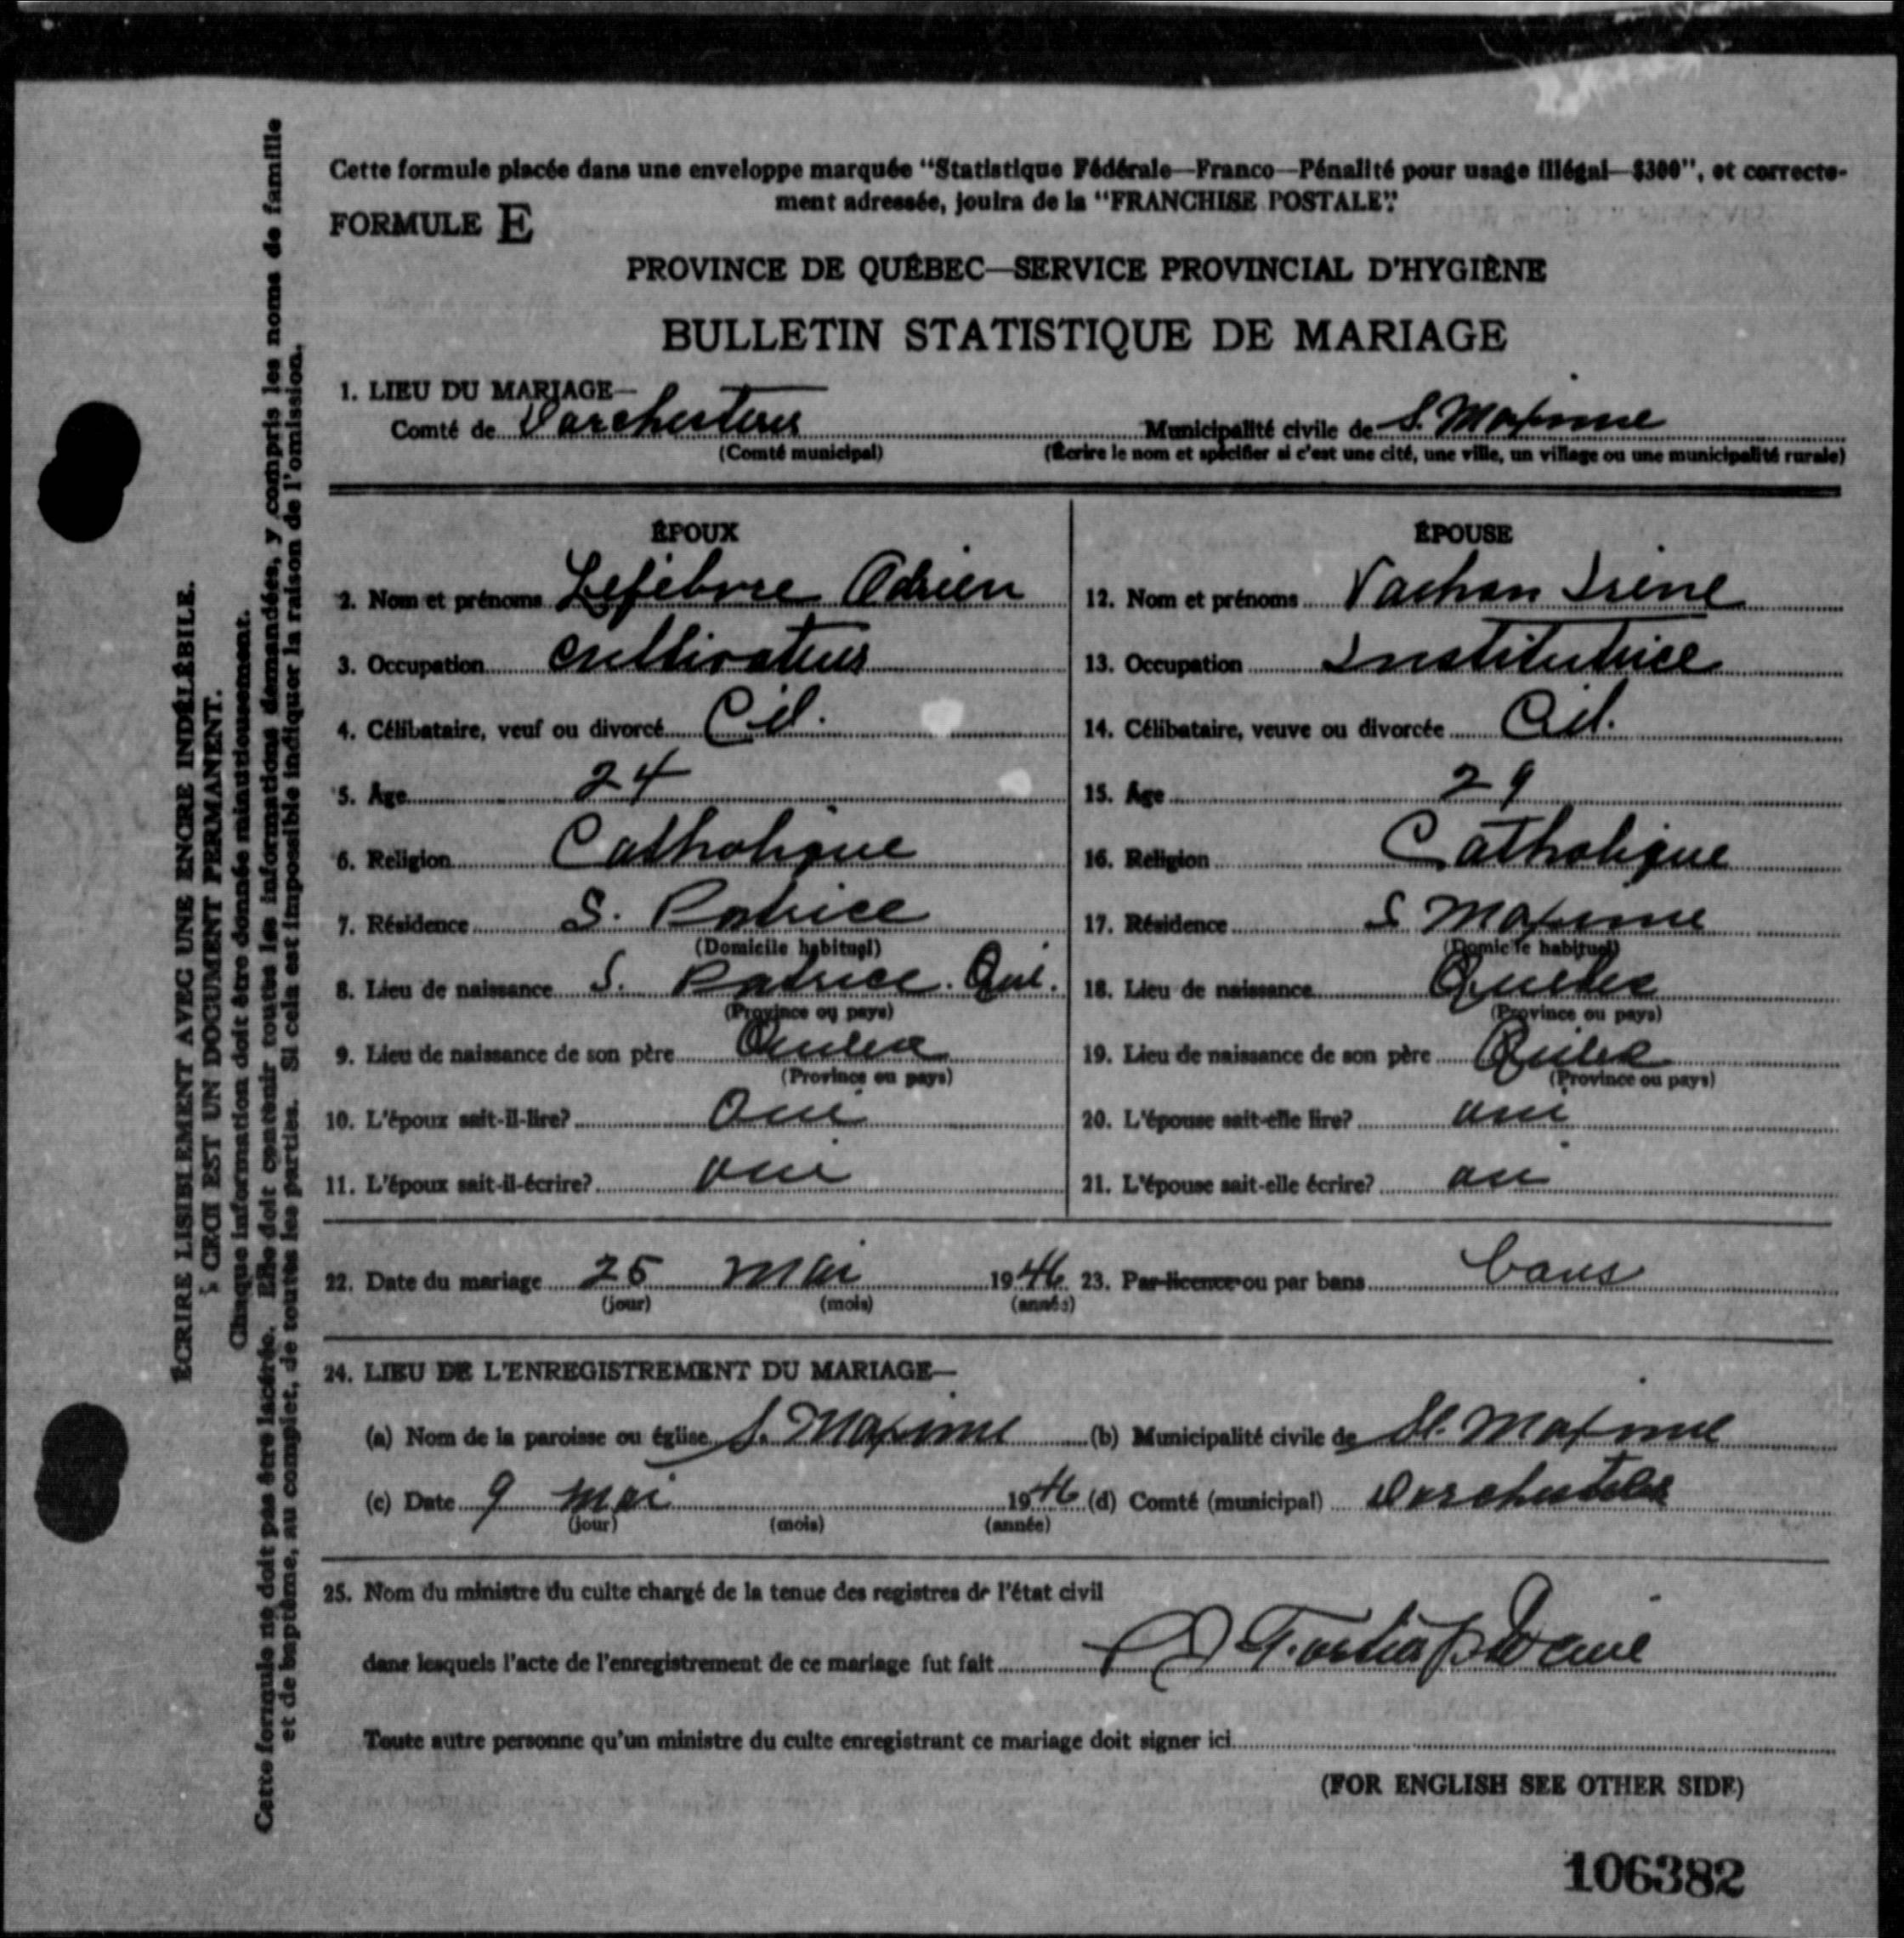 Cette formule placée dans une enveloppe marquée "Statistique Fédérale—Franco—Pénalité pour usage illégal—$300", et correcte-
ment adressée, jouira de la "FRANCHISE POSTALE".
FORMULE E
PROVINCE DE QUÉBEC—SERVICE PROVINCIAL D'HYGIÈNE
BULLETIN STATISTIQUE DE MARIAGE
1. LIEU DU MARIAGE—
Comté de Dorchester Municipalité civile de S. Maxime
(Comté municipal) (Écrire le nom et spécifier si c'est une cité, une ville, un village ou une municipalité rurale)
ÉPOUX
2. Nom et prénoms Lefebvre Adrien
3. Occupation cultivateur
4. Célibataire, veuf ou divorcé Cél.
5. Âge 24
6. Religion Catholique
7. Résidence S. Patrice
(Domicile habituel)
8. Lieu de naissance S. Patrice. Qué.
(Province ou pays)
9. Lieu de naissance de son père Quebec
(Province ou pays)
10. L'époux sait-il-lire? Oui
11. L'époux sait-il-écrire? oui
ÉPOUSE
12. Nom et prénoms Vachon Irène
13. Occupation Institutrice
14. Célibataire, veuve ou divorcée Cél.
15. Âge 29
16. Religion Catholique
17. Résidence S Maxime
(Domicile habituel)
18. Lieu de naissance Quebec
(Province ou pays)
19. Lieu de naissance de son père Quebec
(Province ou pays)
20. L'épouse sait-elle lire? oui
21. L'épouse sait-elle écrire? oui
22. Date du mariage 25 mai 1946 23. Par licence ou par bans bans
(jour) (mois) (année)
24. LIEU DE L'ENREGISTREMENT DU MARIAGE—
(a) Nom de la paroisse ou église S. Maxime (b) Municipalité civile de St. Maxime
(c) Date 9 mai 1946 (d) Comté (municipal) Dorchester
(jour) (mois) (année)
25. Nom du ministre du culte chargé de la tenue des registres de l'état civil
dans lesquels l'acte de l'enregistrement de ce mariage fut fait Fortier ptre Curé
Toute autre personne qu'un ministre du culte enregistrant ce mariage doit signer ici
(FOR ENGLISH SEE OTHER SIDE)
106382
ÉCRIRE LISIBLEMENT AVEC UNE ENCRE INDÉLÉBILE.
CECI EST UN DOCUMENT PERMANENT.
Chaque information doit être donnée minutieusement.
Cette formule ne doit pas être lacérée. Elle doit contenir toutes les informations demandées, y compris les noms de famille
et de baptême, au complet, de toutes les parties. Si cela est impossible indiquer la raison de l'omission.